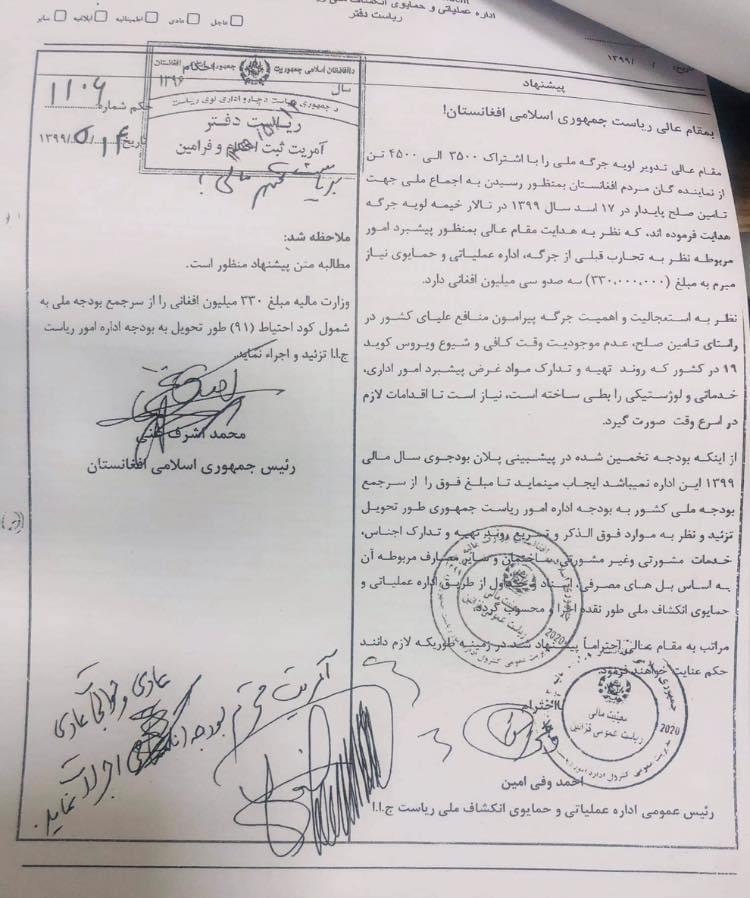 اداره عملیاتی و حمایوی انکشاف ملی
ریاست دفتر
عاجل عادی اطمینانیه ابلاغیه سایر
پیشنهاد
بمقام عالی ریاست جمهوری اسلامی افغانستان!
مقام عالی تدویر لویه جرگه ملی را با اشتراک ۳۵۰۰ الی ۴۵۰۰ تن
از نماینده گان مردم افغانستان بمنظور رسیدن به اجماع ملی جهت
تامین صلح پایدار در ۱۷ اسد سال ۱۳۹۹ در تالار خیمه لویه جرگه
هدایت فرموده اند، که نظر به هدایت مقام عالی بمنظور پیشبرد امور
مربوطه نظر به تجارب قبلی از جرگه، اداره عملیاتی و حمایوی نیاز
مبرم به مبلغ (۳۳۰,۰۰۰,۰۰۰) سه صدو سی میلیون افغانی دارد.
نظر به استعجالیت و اهمیت جرگه پیرامون منافع علیای کشور در
راستای تامین صلح، عدم موجودیت وقت کافی و شیوع ویروس کوید
۱۹ در کشور که روند تهیه و تدارک مواد غرض پیشبرد امور اداری،
خدماتی و لوژستیکی را بطی ساخته است، نیاز است تا اقدامات لازم
در اسرع وقت صورت گیرد.
از اینکه بودجه تخمین شده در پیشبینی پلان بودجوی سال مالی
۱۳۹۹ این اداره نمیباشد ایجاب مینماید تا مبلغ فوق را از سرجمع
بودجه ملی کشور به بودجه اداره امور ریاست جمهوری طور تحویل
تزئید و نظر به موارد فوق الذکر و تسریع روند تهیه و تدارک اجناس،
خدمات مشورتی وغیر مشورتی، ساختمان و سایر مصارف مربوطه آن
به اساس بل های مصرفی، اسناد و جداول از طریق اداره عملیاتی و
حمایوی انکشاف ملی طور نقده اجرا و محسوب گردد.
مراتب به مقام عالی احتراماً پیشنهاد شد در زمینه طوریکه لازم دانند
حکم عنایت خواهند فرمود.
بااحترام
احمد وفی امین
رئیس عمومی اداره عملیاتی و حمایوی انکشاف ملی ریاست ج.ا.ا
معینیت مالی
ریاست عمومی خزاین
2020
معینیت مالی
ریاست عمومی خزاین
2020
احکام
سال
۱۳۹۶
ریاست دفتر
آمریت ثبت احکام و فرامین
حکم شماره ۱۱۰۶
تاریخ ۱۴/۵/۱۳۹۹
ملاحظه شد:
مطالبه متن پیشنهاد منظور است.
وزارت مالیه مبلغ ۳۳۰ میلیون افغانی را از سرجمع بودجه ملی به
شمول کود احتیاط (۹۱) طور تحویل به بودجه اداره امور ریاست
ج.ا.ا تزئید و اجراء نماید.
محمد اشرف غنی
رئیس جمهوری اسلامی افغانستان
آمریت محترم بودجه
اجراات نماید.